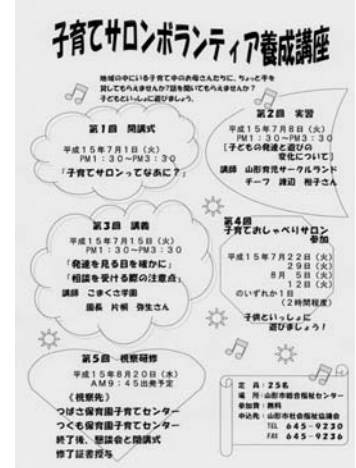 子育てサロンボランティア養成講座
地域の中にいる子育て中のお母さんたちに、ちょっと手を
貸してもらえませんか?話を聞いてもらえませんか?
子どもといっしょに遊びましょう。
第1回 開講式
平成15年7月1日(火)
PM1:30~PM3:30
「子育てサロンってなあに?」
第2回 実習
平成15年7月8日(火)
PM1:30~PM3:30
「子どもの発達と遊びの
変化について」
講師 山形育児サークルランド
チーフ 渡辺 裕子さん
第3回 講義
平成15年7月15日(火)
PM1:30~PM3:30
「発達を見る目を確かに」
「相談を受ける際の注意点」
講師 こまくさ学園
園長 片桐 弥生さん
第4回
子育ておしゃべりサロン
参加
平成15年7月22日(火)
29日(火)
8月 5日(火)
12日(火)
のいずれか1日
(2時間程度)
子供といっしょに
遊びましょう!
第5回 視察研修
平成15年8月20日(水)
AM9:45出発予定
《視察先》
つばさ保育園子育てセンター
つくも保育園子育てセンター
終了後、懇談会と閉講式
修了証書授与
定 員:25名
場 所:山形市総合福祉センター
参加費:無料
申込先:山形市社会福祉協議会
TEL 645-9230
FAX 645-9236